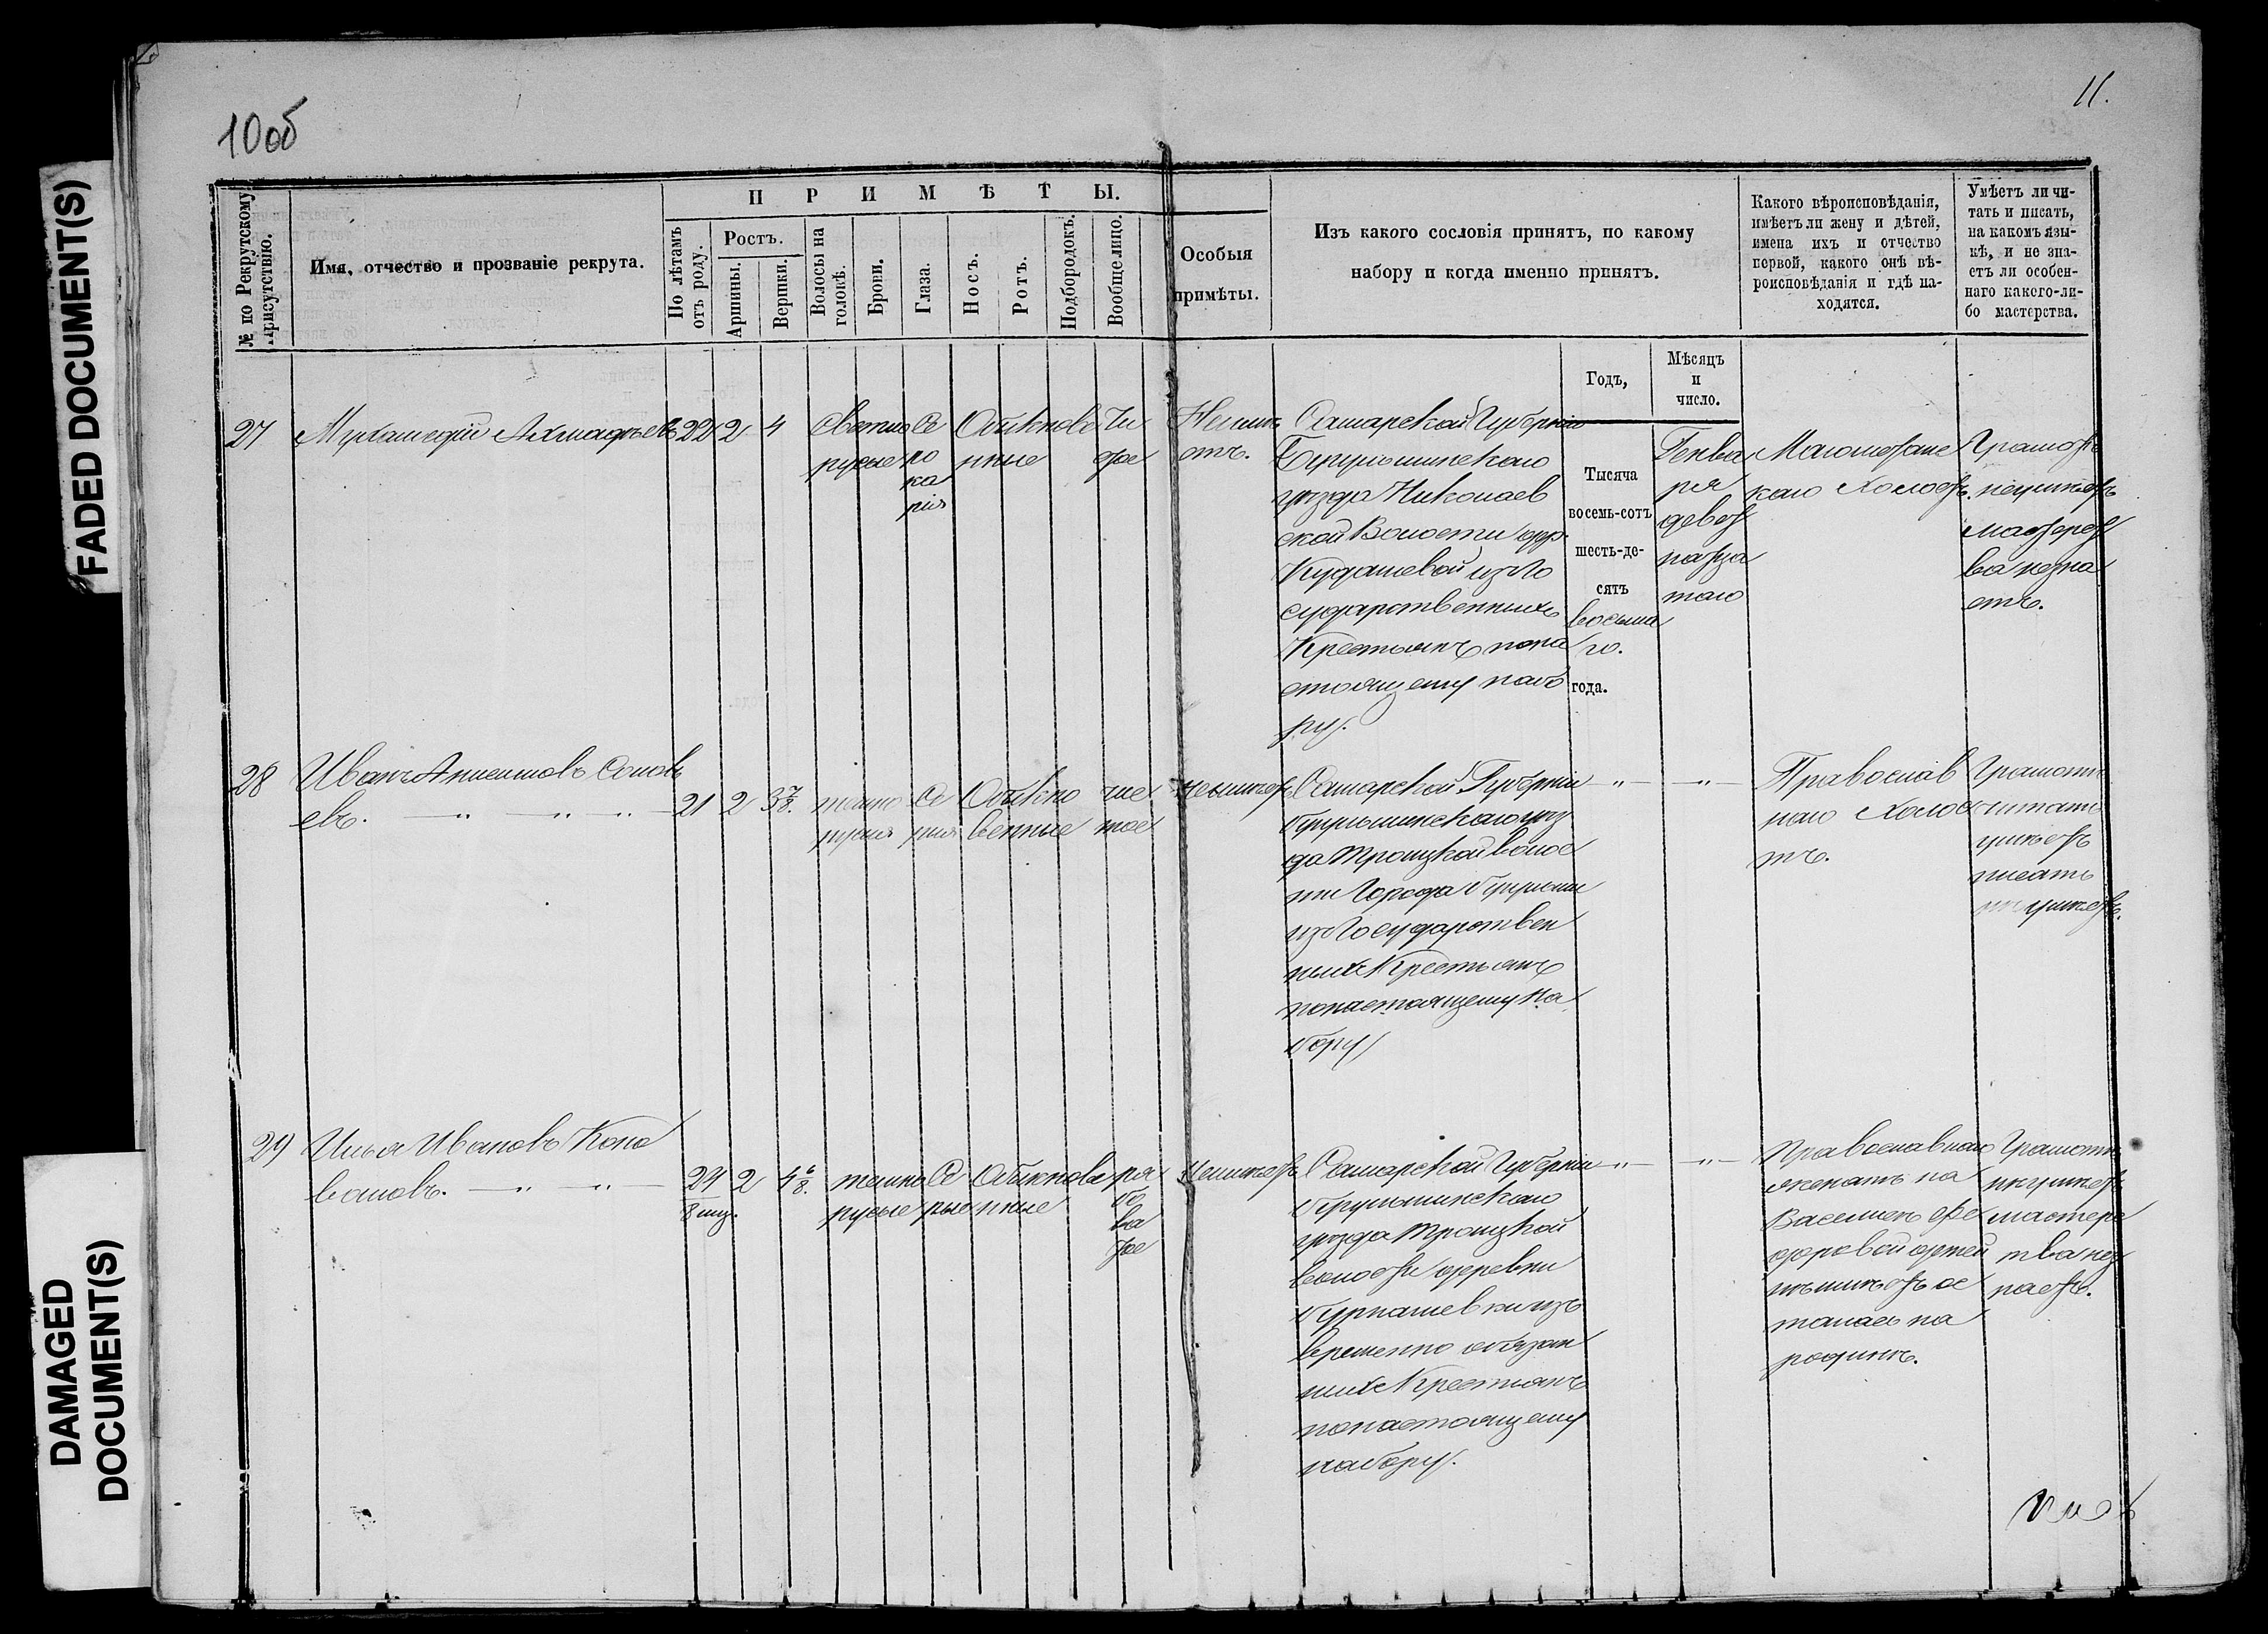 FADED DOCUMENT(S)
DAMAGED
DOCUMENT(S)
10об
11.
№ по Рекрутскому присутствію.
Имя, отчество и прозваніе рекрута.
ПРИМѢТЫ.
По лѣтамъ отъ роду.
Ростъ.
Аршины.
Вершки.
Волосы на головѣ.
Брови.
Глаза.
Носъ.
Ротъ.
Подбородокъ.
Вообще лицо.
Особыя
примѣты.
Изъ какого сословія принятъ, по какому
набору и когда именно принятъ.
Какого вѣроисповѣданія,
имѣетъ ли жену и дѣтей,
имена ихъ и отчество
первой, какого онѣ вѣ-
роисповѣданія и гдѣ на-
ходятся.
Умѣетъ ли чи-
тать и писать,
на какомъ язы-
кѣ, и не зна-
етъ ли особен-
наго какого-ли-
бо мастерства.
Годъ,
Мѣсяцъ
и
число.
27
Мухамедій Ахмадѣевъ
22
2
4
Светло
русые
Се
ро
ка
рія
Обыкнове
нные
Чи
стое
Неимѣ
етъ.
Самарской Губерніи
Бугульминскаго
уѣзда Николаев
ской Волости дер.
Кудашевой изъ Го
сударственныхъ
Крестьянъ пона
стоящему набо
ру.
Тысяча
восемь-сотъ
шесть-де-
сятъ
восьма
го.
года.
Генва
ря
девят
надца
таго
Магометанс
каго Холостъ.
Грамотѣ
неумѣетъ
мастерст
ва незна
етъ.
28
Иванъ Анисимовъ Соловь
евъ. — " — " — " —
21
2
3 7/8.
темно
русыя
Се
рыя
Обыкно
венные
чис
тое
неимѣетъ
Самарской Губерніи
Бугульминскаго уѣз
да Троицкой волос
ти Города Бугульмы
изъ Государствен
ныхъ Крестьянъ
понастоящему на
бору
— " —
— " —
Православ
наго Холос
тъ.
Грамотѣ
читать
умѣетъ
писать
неумѣетъ.
29
Илья Ивановъ Коно
валовъ. — " — " —
24
8 мц.
2
4 6/8.
темно
русые
Се
рые
Обыкнове
нные
ря
бо
ва
тое
Неимѣетъ
Самарской Губерніи
Бугульминскаго
уѣзда Троицкой
волости деревни
временно обязан
ныхъ Крестьянъ
понастоящему
набору.
— " —
— " —
Православнаго
женатъ на
Василисѣ Фе
доровой дѣтей
неимѣетъ ос
талась на
родинѣ.
Грамотѣ
неумѣетъ
мастерс
тва нез
наетъ.